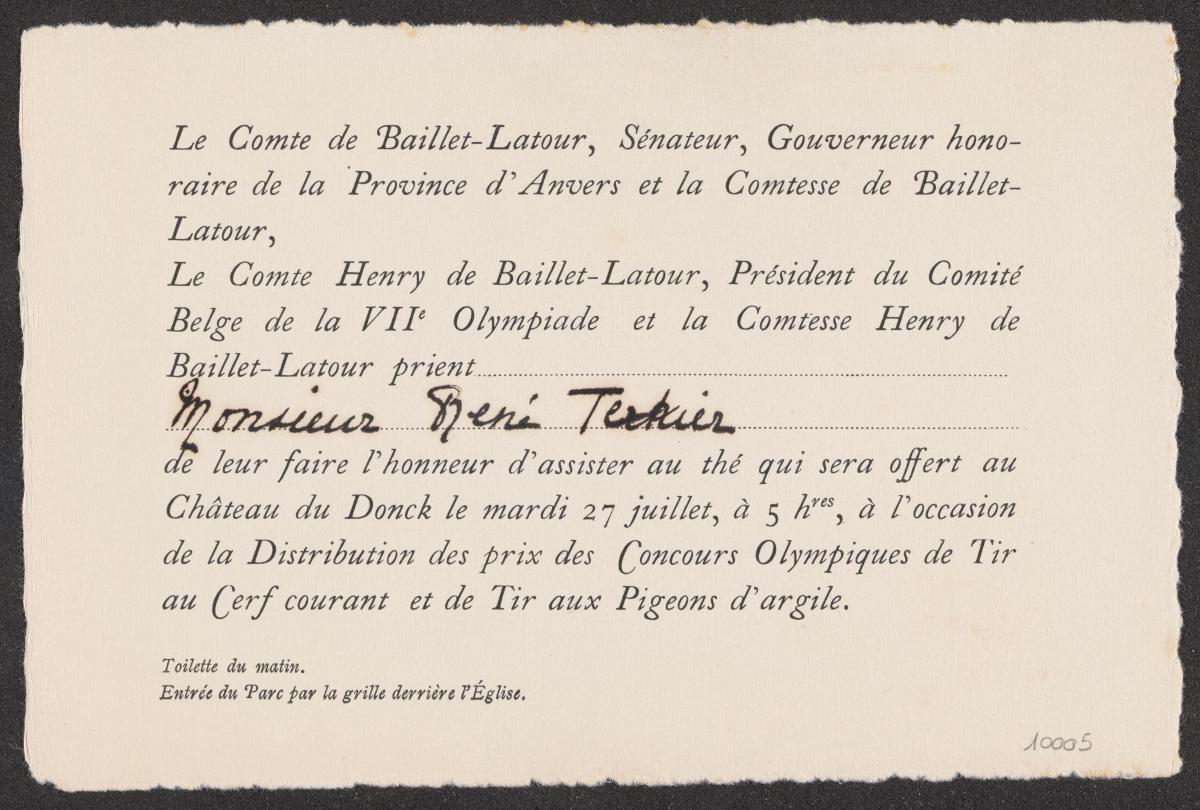 Le Comte de Baillet-Latour, Sénateur, Gouverneur hono-
raire de la Province d'Anvers et la Comtesse de Baillet-
Latour,
Le Comte Henry de Baillet-Latour, Président du Comité
Belge de la VIIe Olympiade et la Comtesse Henry de
Baillet-Latour prient
Monsieur René
de leur faire l'honneur d'assister au thé qui sera offert au
Château du Donck le mardi 27 juillet, à 5 hres, à l'occasion
de la Distribution des prix des Concours Olympiques de Tir
au Cerf courant et de Tir aux Pigeons d'argile.
Toilette du matin.
Entrée du Parc par la grille derrière l'Église.
10005